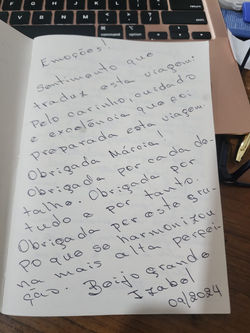 Emoções!
Sentimento que
traduz esta viagem.
Pelo carinho, cuidado
e excelência que foi
preparada esta viagem.
Obrigada Márcia!
Obrigada por cada de-
talhe. Obrigada por
tudo e por tanto.
Obrigada por este gru-
po que se harmonizou
na mais alta perfei-
ção. Beijo grande
Izabel
09/2024